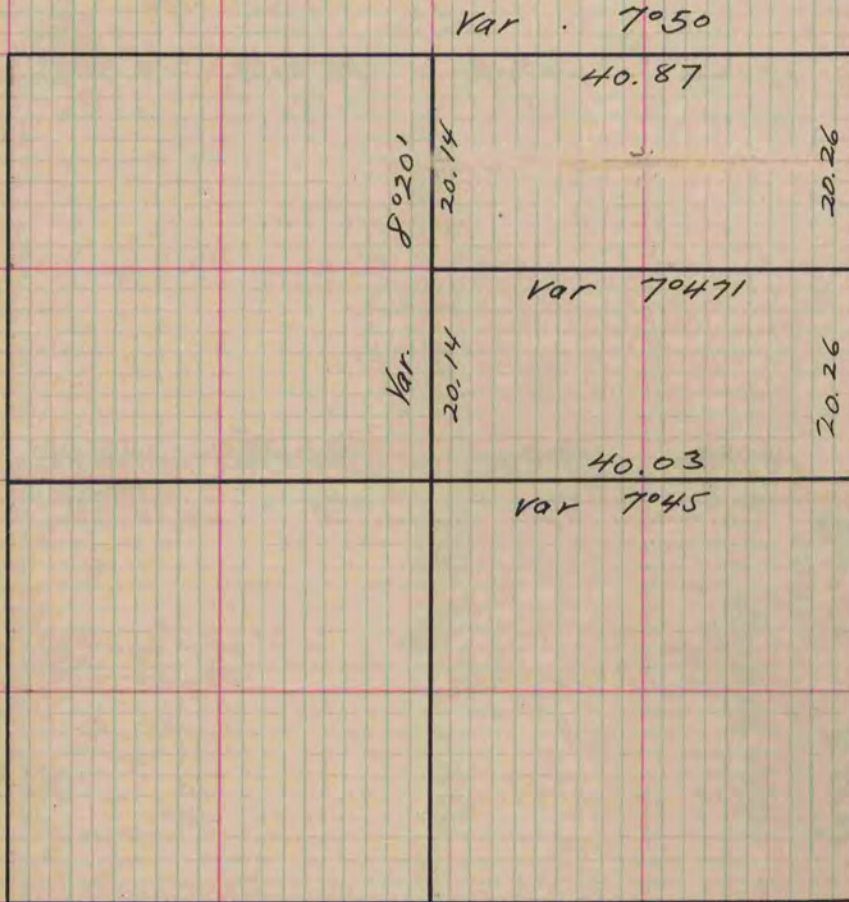 Var . 7°50
40.87
8°20'
20.14
20.26
Var 7°47'
Var.
20.14
20.26
40.03
Var 7°45